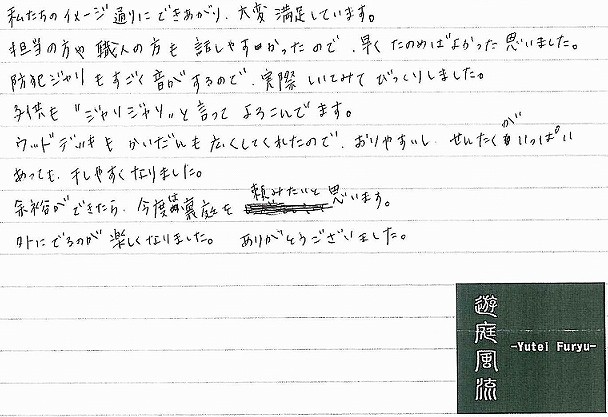 私たちのイメージ通りにできあがり、大変満足しています。
担当の方や職人の方も話しやすかったので、早くたのめばよかった思いました。
防犯ジャリもすごく音がするので、実際しいてみてびっくりしました。
子供も"ジャリジャリ"と言ってよろこんでます。
ウッドデッキもかいだんも広くしてくれたので、おりやすいし、せんたくがいっぱい
あっても、干しやすくなりました。
余裕ができたら、今度裏庭を頼みたいと思います。
外にでるのが楽しくなりました。 ありがとうございました。
遊庭風流
-Yutei Furyu-